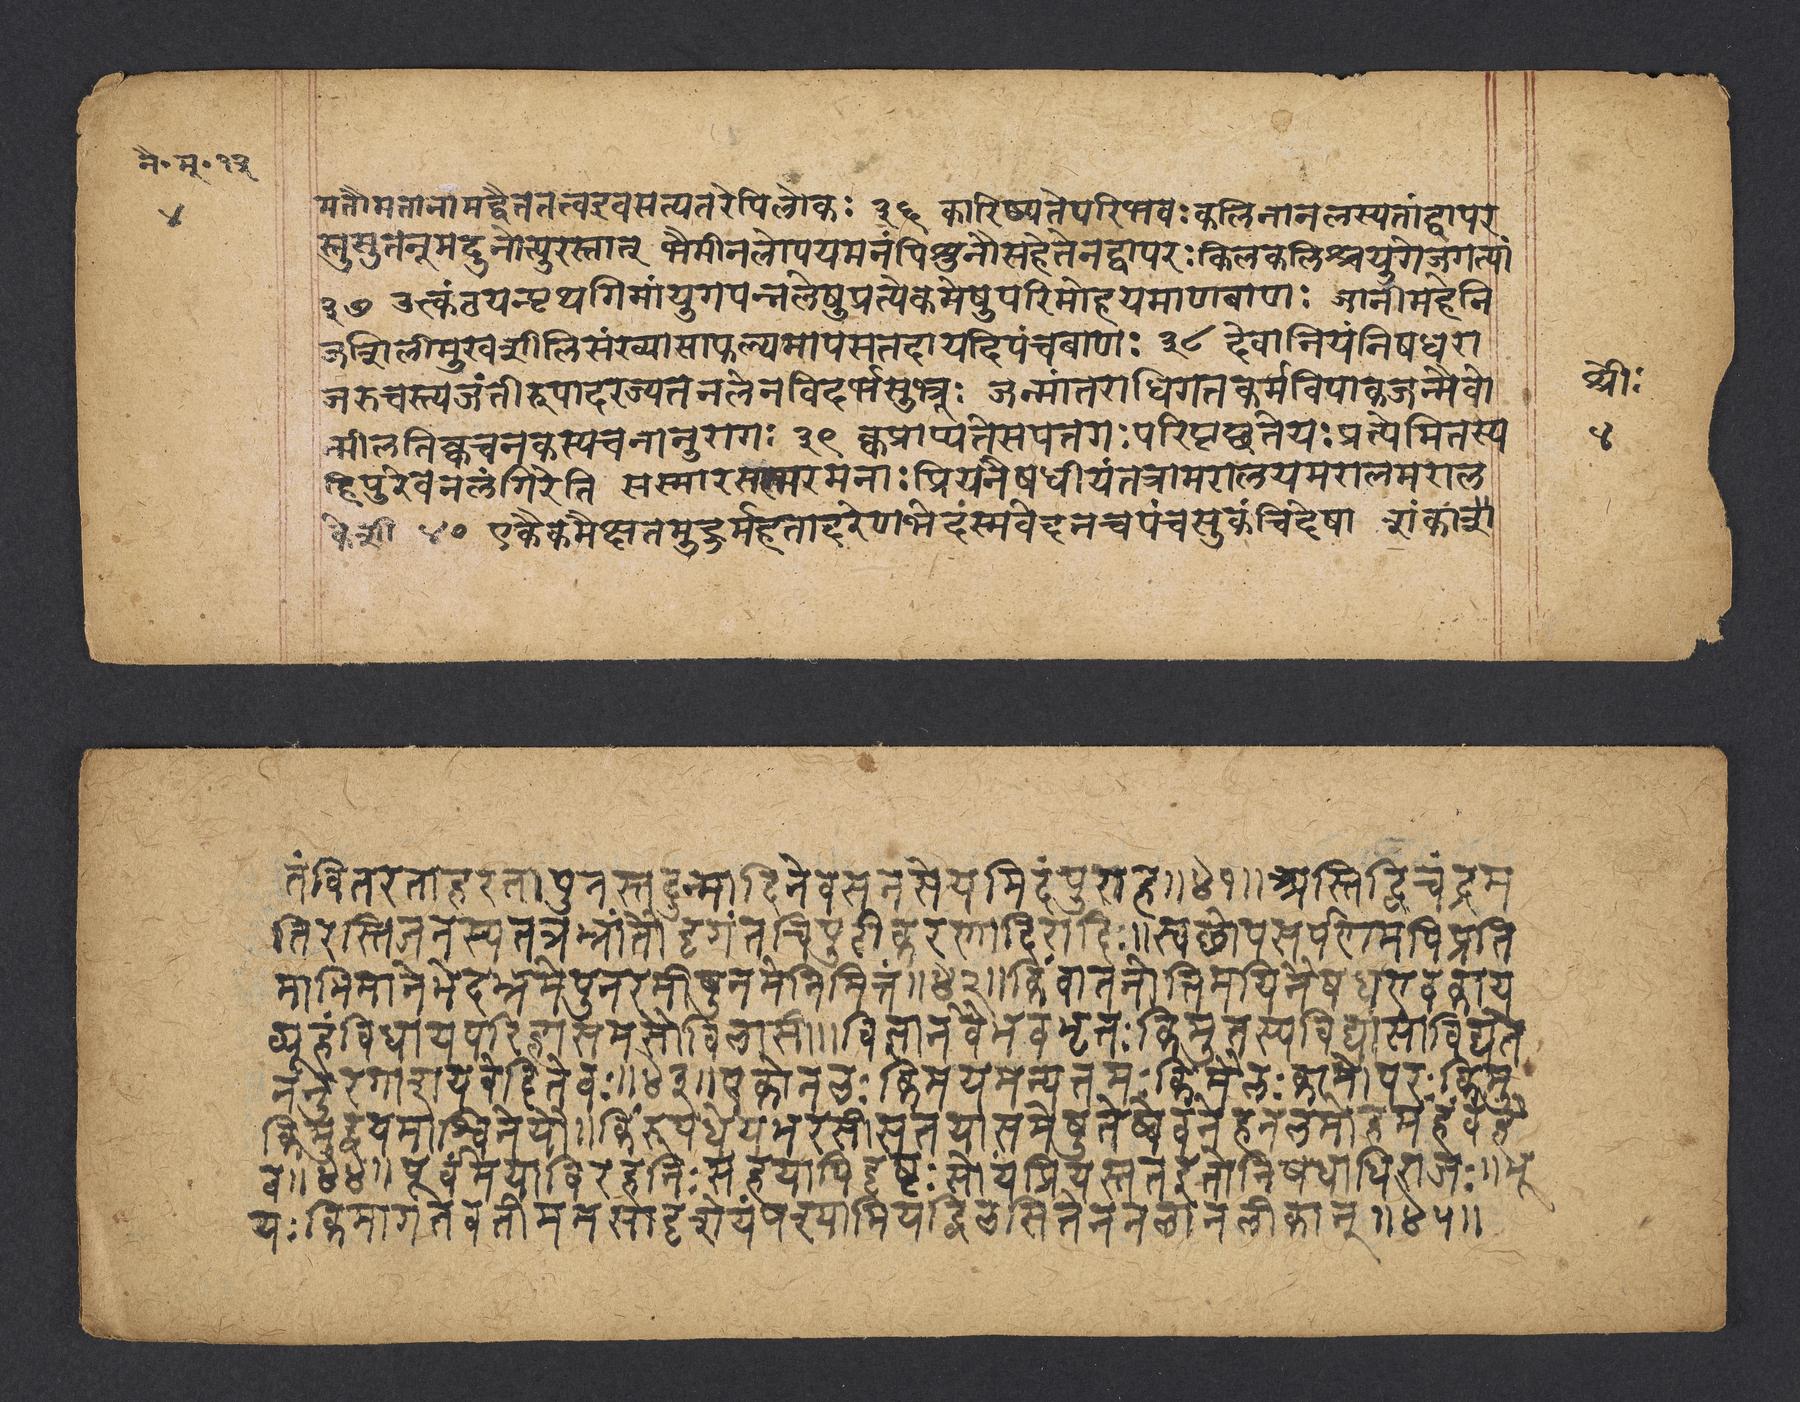 नै॰मू॰१३
४
मतौमतानामद्वैततत्वइवसत्यतरेपिलोकः ३६ कारिष्यतेपरिभवःकलिनानलस्यतांद्वापर
स्तुसुतनूमदुनोत्पुरस्तात् भैमीनलोपयमनंपिशुनौसहेतेनद्वापरःकिलकलिश्चयुगेजगत्यां
३७ उत्कंठयन्पृथगिमांयुगपन्नलेषुप्रत्येकमेषुपरिमोहयमाणबाणः जानीमहेनि
जशिलीमुखशीलिसंख्यासाफल्यमापसतदायदिपंचबाणः ३८ देवानियंनिषधरा
जरुचस्त्यजंतीरूपादरज्यतनलेनविदर्भसुभ्रूः जन्मांतराधिगतकर्मविपाकजन्मैवो
न्मीलतिक्वचनकस्यचनानुरागः ३९ क्वप्राप्यतेसपतगःपरिपृछ्यतेयःप्रत्येमितस्य
हिपुरेवनलंगिरेति सस्मारसस्मरमनाःप्रियनैषधीयंतत्रामरालयमरालमराल
केशी ४० एकैकमैक्षतमुहुर्महतादरेणभेदंस्मवेदनचपंचसुकंचिदेषा शंकाश
श्रीः
४
तंवितरताहरतापुनस्तदुन्मादिनेवसनसेयमिदंपुराह॥४१॥अस्तिद्विचंद्रम
तिरस्तिजनस्यतत्रभ्रांतौदृगंतचिपुटीकरणादिरादिः॥स्वछोपसर्पणमपिप्रति
माभिमानेभेदभ्रमेपुनरमीषुनमेनिमित्तं॥४२॥किंवातनोतिमयिनैषधएवकाय
व्यूहंविधायपरिहासमसौविलासी॥विज्ञानवैभवभृतःकिमुतस्यविद्यासाविद्यते
नतुरगाशयवेदितेव॥४३॥एकोनलःकिमयमन्यतमःकिमैलःकामोपरःकिमु
किमुद्वयमाश्विनेयौ॥किंरूपधेयभरसीमतयासमेषुतेष्वेवनेहनलमोहमहंवहे
व॥४४॥पूर्वंमयाविरहनिःसहयापिदृष्टःसोयंप्रियस्ततइतोनिषधाधिराजः॥भू
यःकिमागतवतीममसादृशेयंपश्यामियद्विलसितेननलानलीकान्॥४५॥